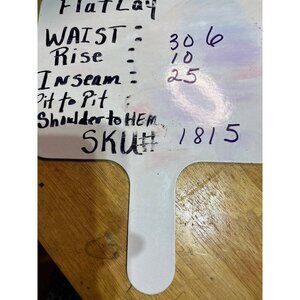 Flat Lay
WAIST : 30 6
Rise : 10
Inseam : 25
Pit to Pit :
Shoulder to HEM
SKU# 1815